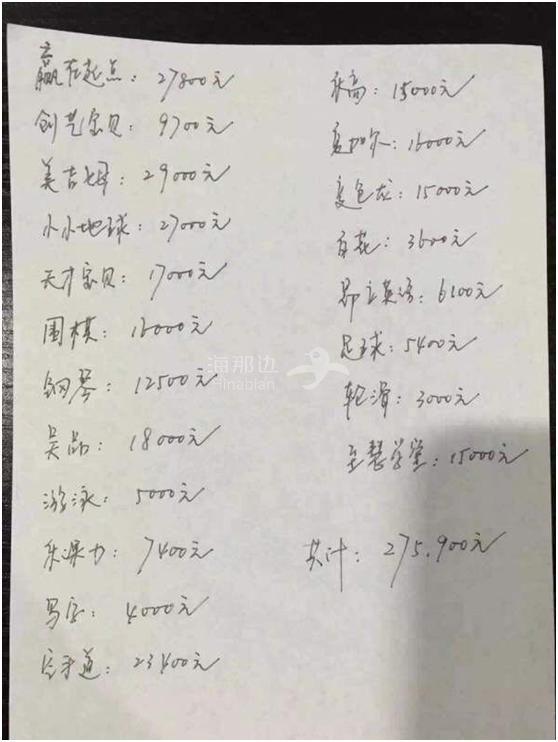 赢在起点：27800元
创艺宝贝：9700元
美吉姆：29000元
小小地球：27000元
天才宝贝：17000元
围棋：16000元
钢琴：12500元
昊品：18000元
游泳：5000元
乐课力：7400元
写字：4000元
空手道：23400元
乐高：15000元
爱加尔：16000元
变色龙：15000元
百花：3600元
昂立英语：6100元
足球：5400元
轮滑：3000元
至慧学堂：15000元
共计：275.900元
海那边
Hinabian